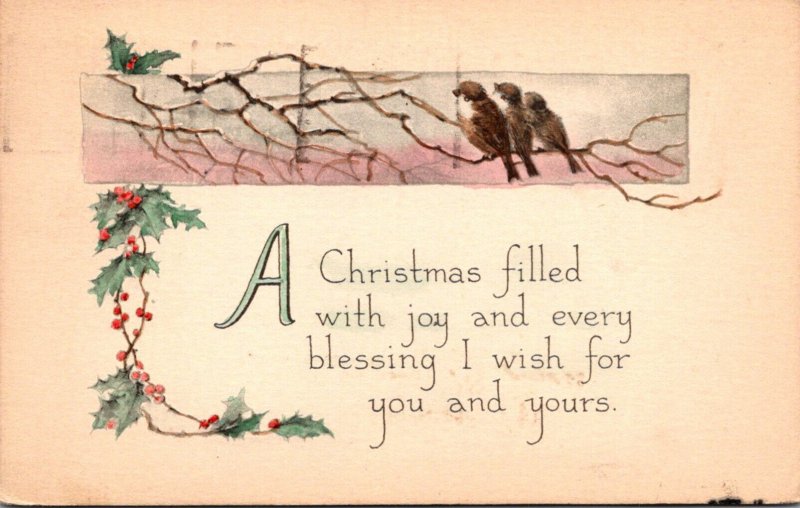 A Christmas filled
with joy and every
blessing I wish for
you and yours.